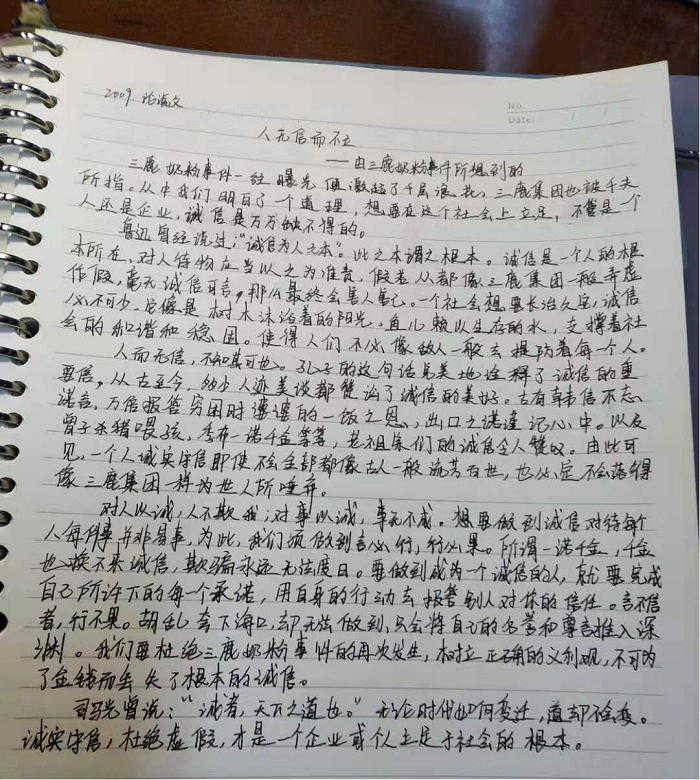 2009. 论说文
No.
Date.
人无信而不立
——由三鹿奶粉事件所想到的
三鹿奶粉事件一经曝光便激起了千层浪花，三鹿集团也被千夫
所指。从中我们明白了一个道理，想要在这个社会上立足，不管是一个
人还是企业，诚信是万万缺不得的。
鲁迅曾经说过："诚信为人之本"。此之本谓之根本。诚信是一个人的根
本所在，对人待物应当以之为准责，假若人都像三鹿集团一般弄虚
作假，毫无诚信可言，那么最终会害人害己。一个社会想要长治久安，诚信
必不可少，它像是树木沐浴着的阳光，鱼儿赖以生存的水，支撑着社
会的和谐和稳固。使得人们不必像敌人一般去提防着每一个人。
人而无信，不知其可也。孔子的这句话完美地诠释了诚信的重
要信，从古至今，多少人迹美谈都赞讼了诚信的美好。古有韩信不忘
诺言，万倍报答穷困时婆婆的一饭之恩，出口之诺谨记心中。以及
曾子杀猪喂孩，季布一诺千金等等，老祖宗们的诚信令人赞叹。由此可
见，一个人诚实守信即使不会全部都像古人一般流芳百世，也必定不会落得
像三鹿集团一样为世人所唾弃。
对人以诚，人不欺我；对事以诚，事无不成。想要做到诚信对待每个
人每件事并非易事，为此，我们须做到言必行，行必果。所谓一诺千金，千金
也换不来诚信，欺骗永远无法度日。要做到成为一个诚信的人，就要完成
自己所许下的每一个承诺，用自身的行动去报答别人对你的信任。言不信
者，行不果。胡乱夸下海口，却无法做到，只会将自己的名誉和尊言推入深
渊。我们要杜绝三鹿奶粉事件的再次发生，树立正确的义利观，不可为
了金钱而丢失了根本的诚信。
司马光曾说："诚者，天下之道也。"无论时代如何变迁，道却不会变。
诚实守信，杜绝虚假，才是一个企业或个人立足于社会的根本。